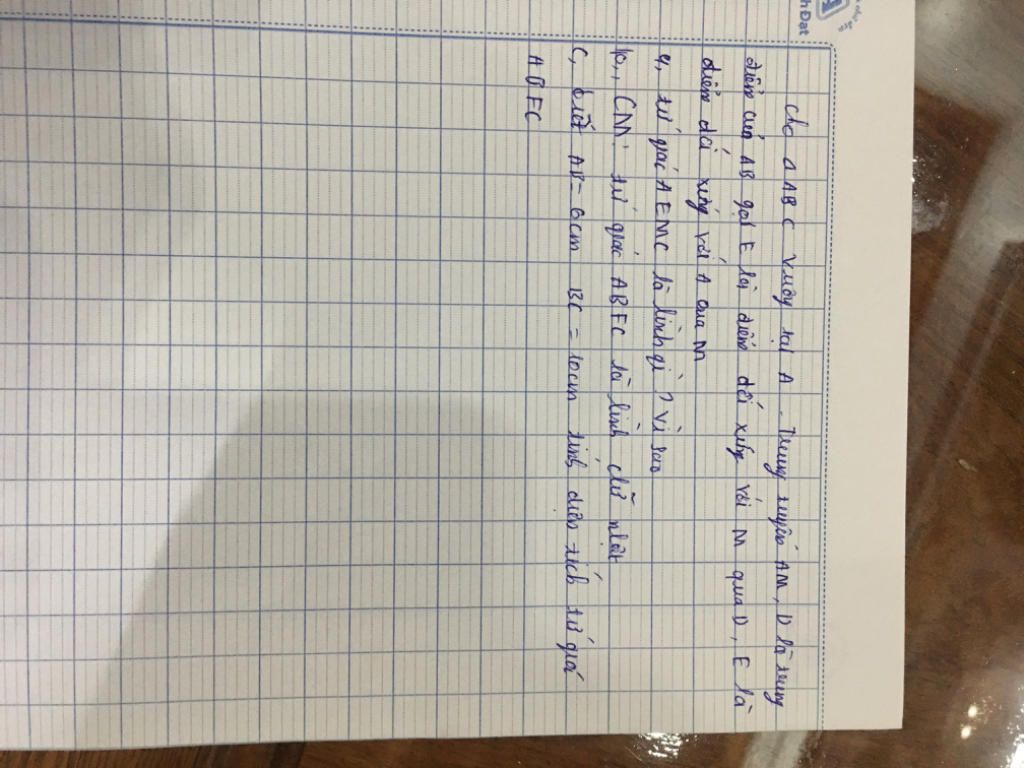 cho ∆ ABC vuông tại A. Trung tuyến AM, D là trung
điểm của AB gọi E là điểm đối xứng với M qua D, E là
điểm đối xứng với A qua M
a, tứ giác AEMC là hình gì ? vì sao
b, CM: tứ giác ABFC là hình chữ nhật
c, biết AB = 6cm BC = 10cm tính diện tích tứ giác
ABFC
h Đạt